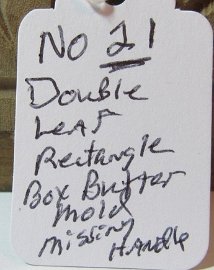 No 21
Double
Leaf
Rectangle
Box Butter
mold
missing HANDLE